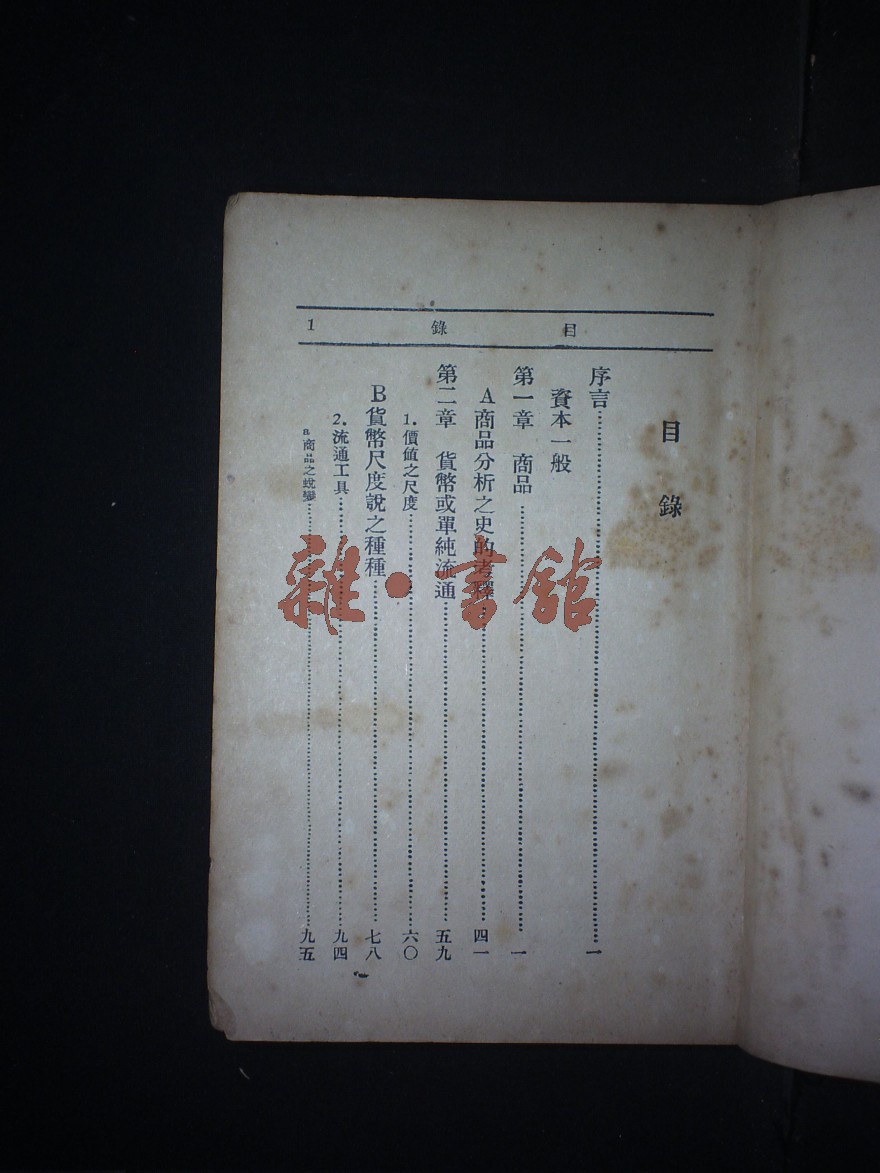 目錄 1
目錄
序言 一
資本一般
第一章 商品 一
A商品分析之史的考釋 四一
第二章 貨幣或單純流通 五九
1.價値之尺度 六〇
B貨幣尺度說之種種 七八
2.流通工具 九四
a商品之蛻變 九五
雜·書館